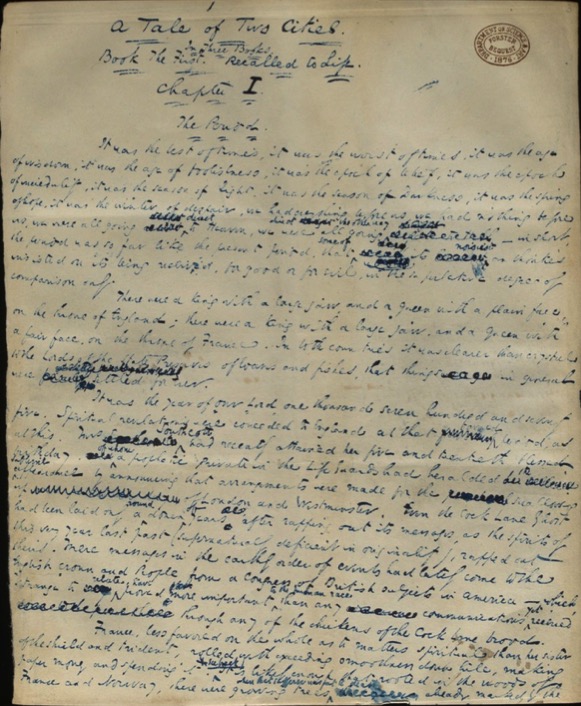 A Tale of Two Cities.
In Three Books.
Book The First. Recalled to Life.
Chapter I.
The Period.
DEPARTMENT OF SCIENCE & ART
FORSTER
BEQUEST
1876
It was the best of times, it was the worst of times, it was the age
of wisdom, it was the age of foolishness, it was the epoch of belief, it was the epoch
of incredulity, it was the season of Light, it was the season of Darkness, it was the spring
of hope, it was the winter of despair, we had everything before us, we had nothing before
us, we were all going direct to Heaven, we were all going direct — in short
the period was so far like the present period, that some of its noisiest authorities
insisted on its being received, for good or for evil, in the superlative degree of
comparison only.
There were a King with a large jaw and a queen with a plain face,
on the throne of England; there were a King with a large jaw and a Queen with
a fair face, on the throne of France. In both countries it was clearer than crystal
to the Lords of the State Preserves of loaves and fishes, that things in general
were settled for ever.
It was the year of our Lord one thousand seven hundred and seventy
five. Spiritual revelations were conceded to England at that period, as
at this. Mrs. Southcott had recently attained her five and twentieth blessed
birthday of whom a prophetic private in the Life Guards had heralded the
appearance by announcing that arrangements were made for the swallowing
up of London and Westminster. Even the Cock Lane Ghost
had been laid only a round dozen of years, after rapping out its messages, as the spirits of
this very year last past (supernaturally deficient in originality) rapped out
theirs. Mere messages in the earthly order of events had lately come to the
English crown and People from a congress of British subjects in America — which
strange to relate, have proved more important to the human race than any communications yet received
through any of the chickens of the Cock Lane brood.
France, less favored on the whole as to matters spiritual than her sister
of the shield and trident, rolled with exceeding smoothness down hill, making
paper money and spending it. rooted in the woods of
France and Norway, there were growing trees, already marked by the